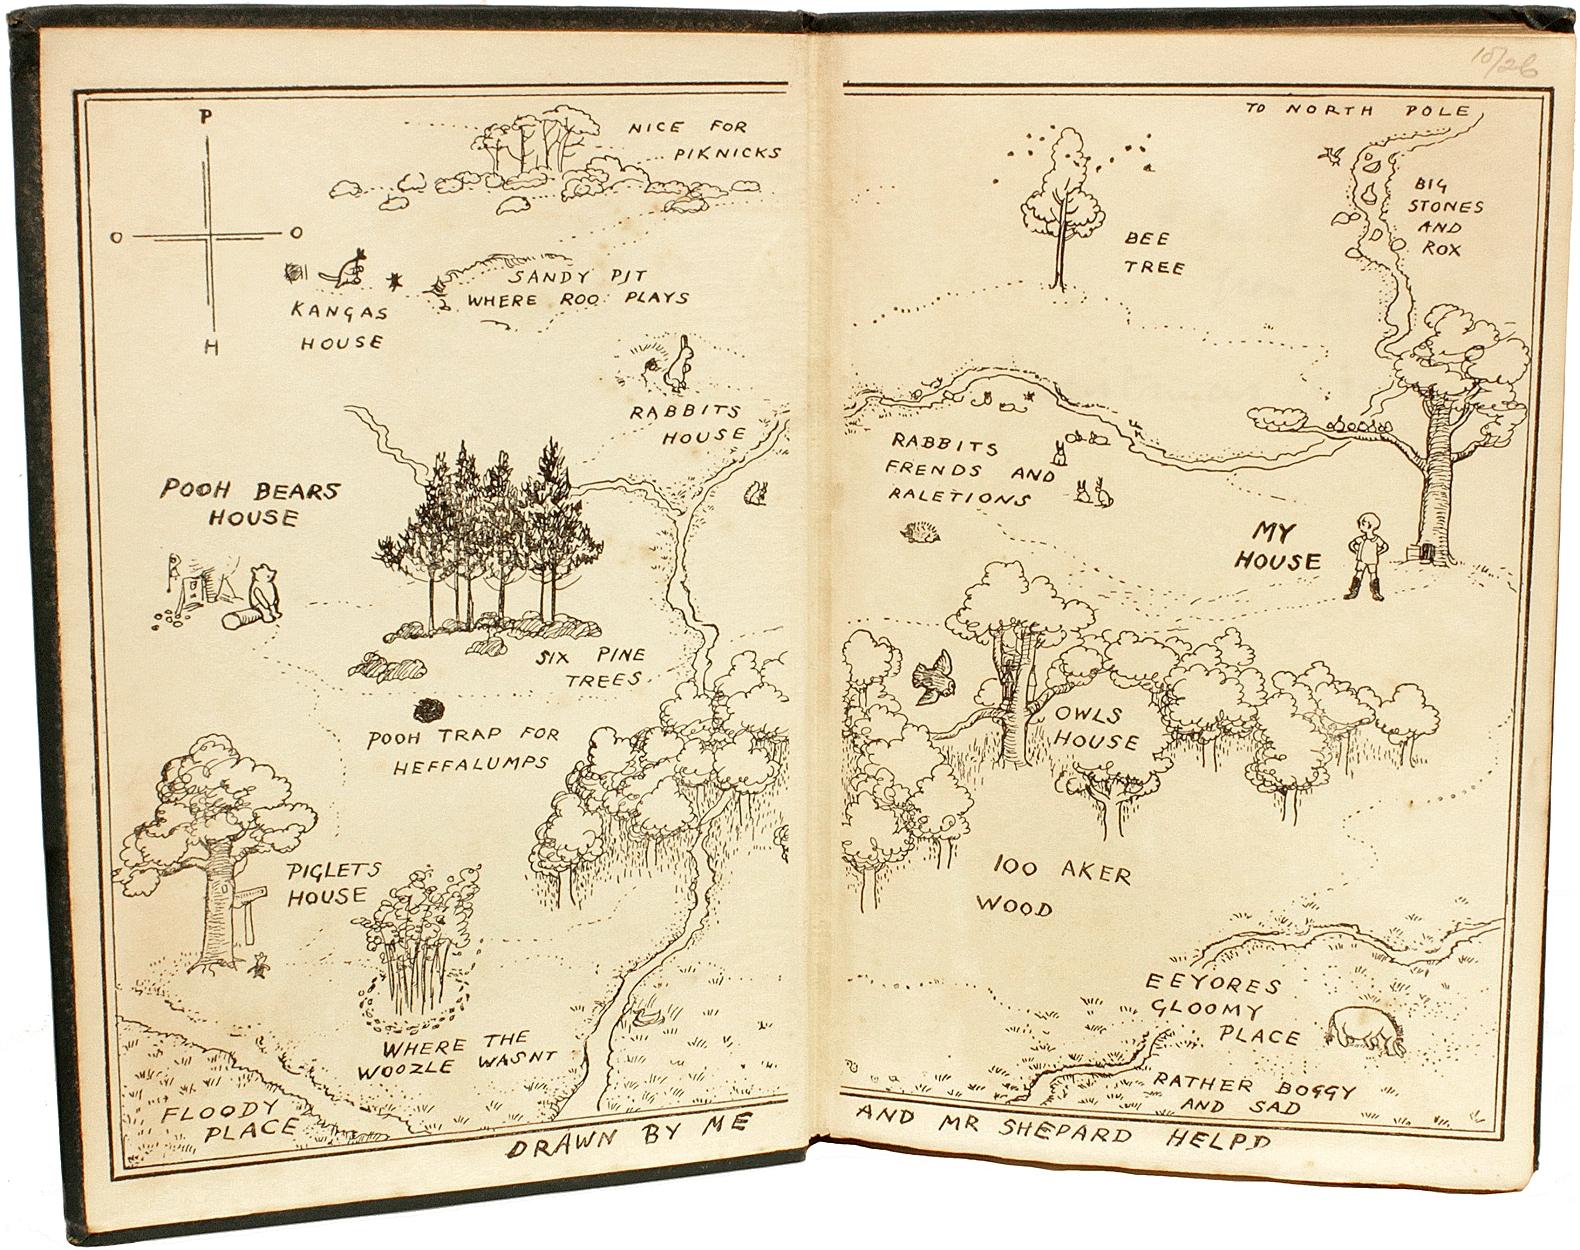 P
O
O
H
NICE FOR
PIKNICKS
KANGAS
HOUSE
SANDY PIT
WHERE ROO PLAYS
RABBITS
HOUSE
POOH BEARS
HOUSE
SIX PINE
TREES
POOH TRAP FOR
HEFFALUMPS
PIGLETS
HOUSE
WHERE THE
WOOZLE WASNT
FLOODY
PLACE
DRAWN BY ME
10/26
TO NORTH POLE
BIG
STONES
AND
ROX
BEE
TREE
RABBITS
FRENDS AND
RALETIONS
MY
HOUSE
OWLS
HOUSE
100 AKER
WOOD
EEYORES
GLOOMY
PLACE
RATHER BOGGY
AND SAD
AND MR SHEPARD HELPD